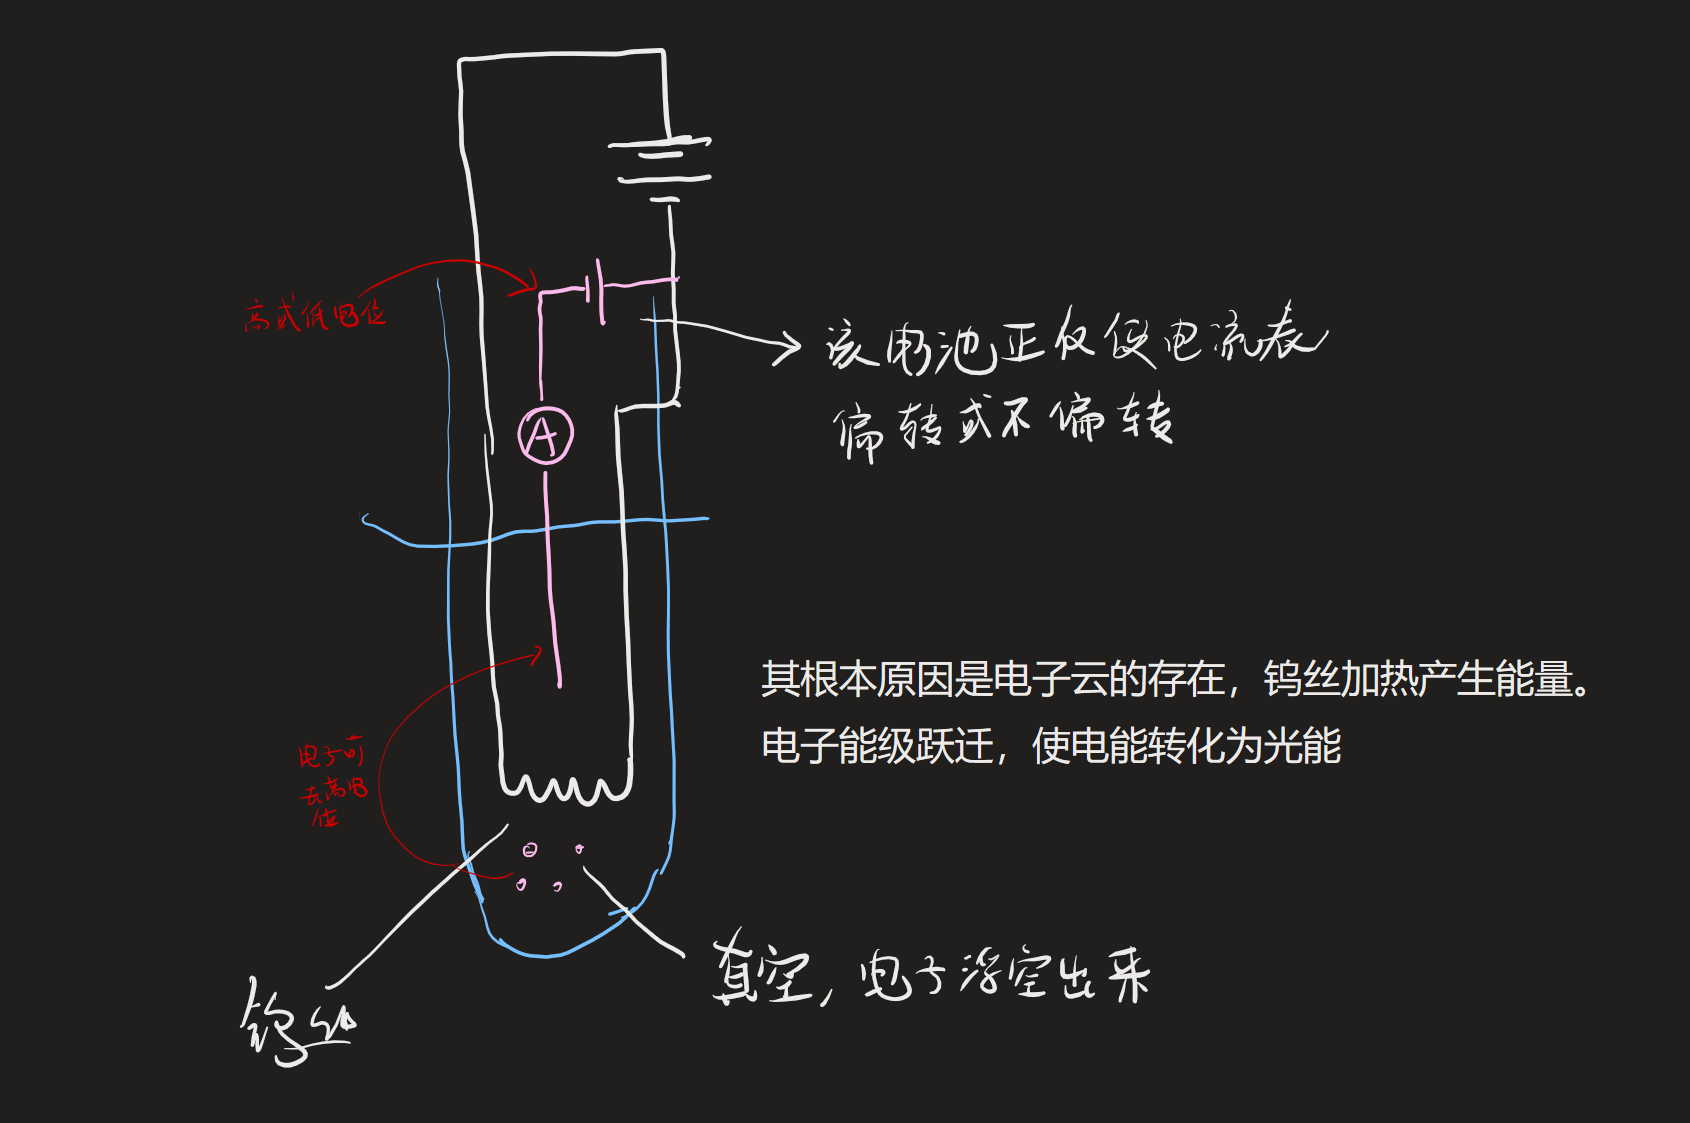 高或低电位
A
该电池正仅使电流表
偏转或不偏转
其根本原因是电子云的存在，钨丝加热产生能量。
电子能级跃迁，使电能转化为光能
电子可
去高电
位
真空，电子浮空出来
钨丝